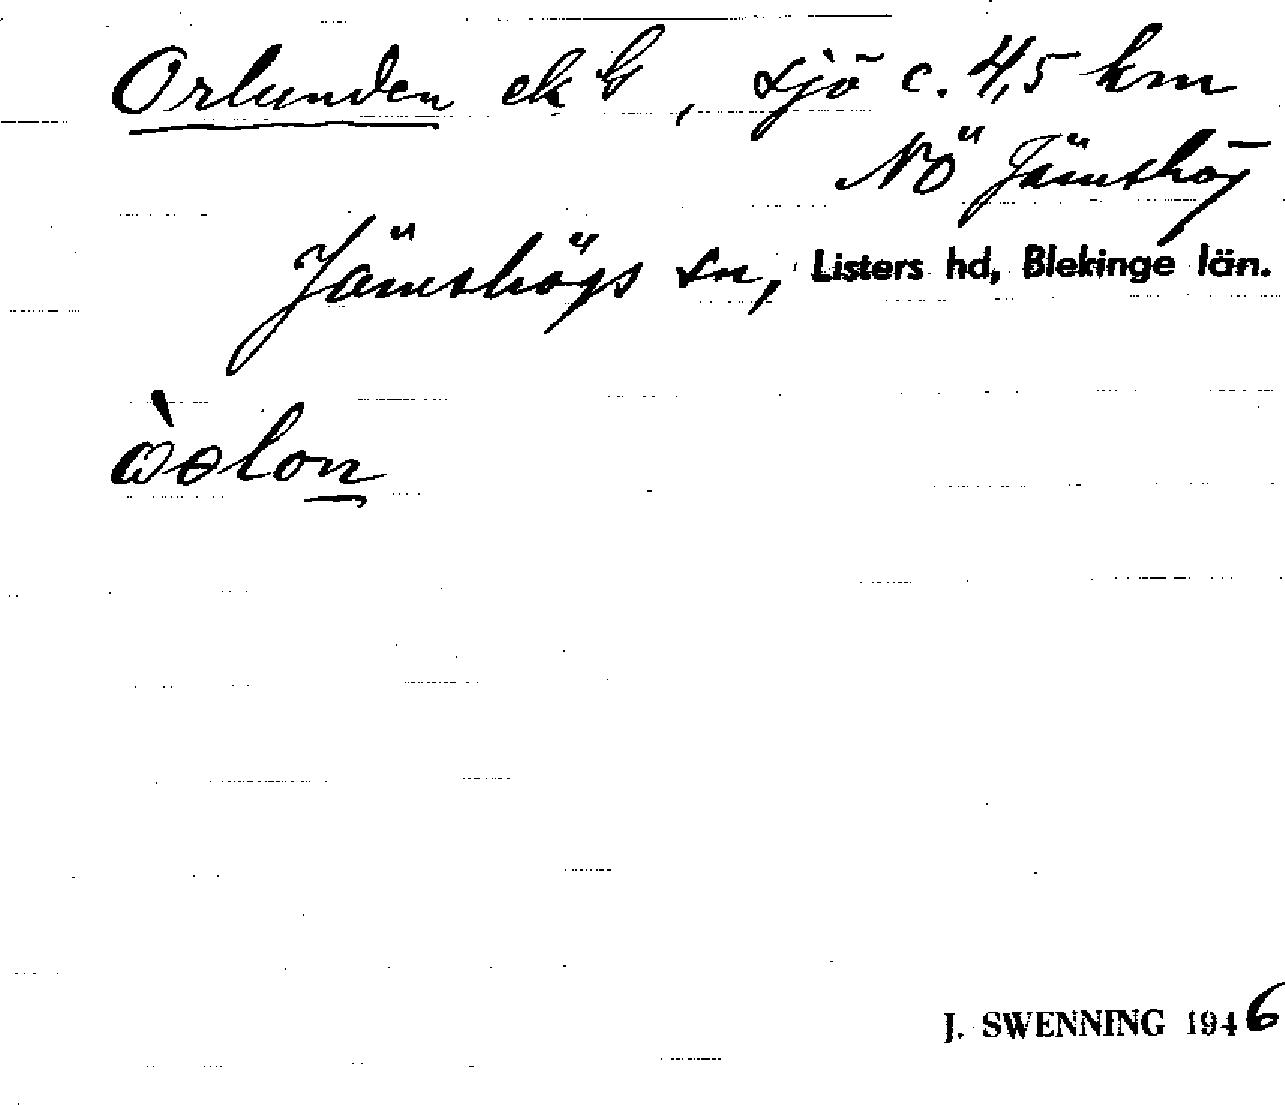 Orlunden ek G, sjö c. 4,5 km
NÖ Jämshög
Jämshögs sn, Listers hd, Blekinge län.
J. SWENNING 1946